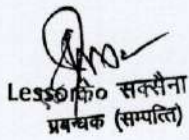 Lessor के० सक्सैना
प्रबन्धक (सम्पत्ति)